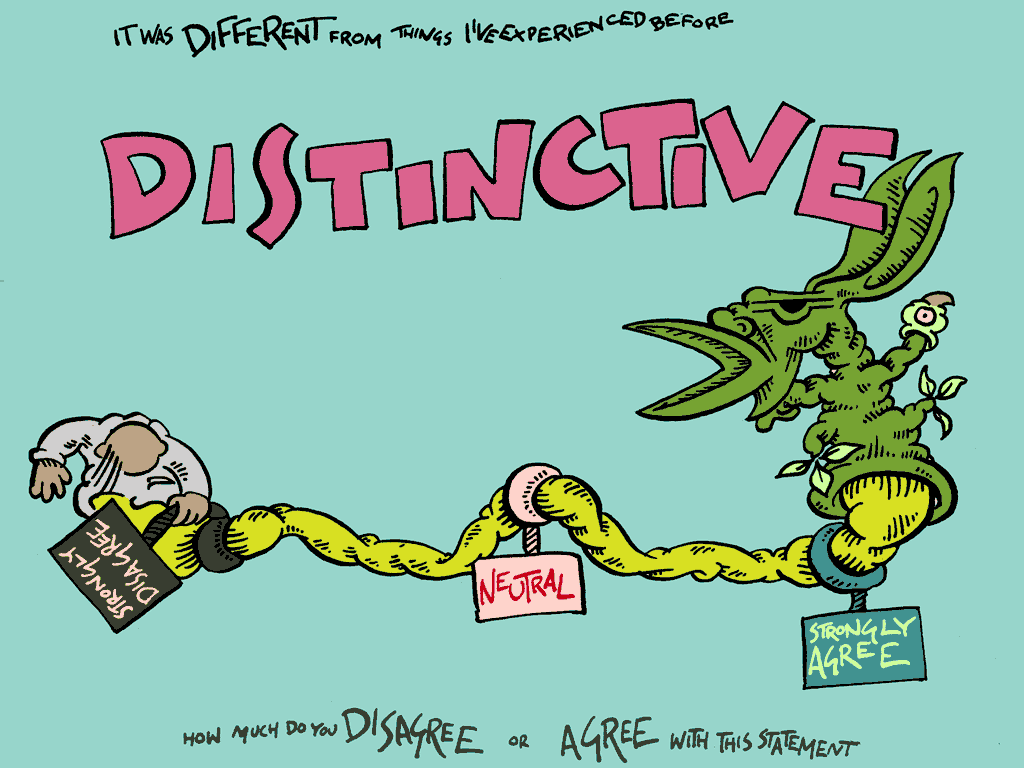 IT WAS DIFFERENT FROM THINGS I'VE EXPERIENCED BEFORE
DISTINCTIVE
STRONGLY
DISAGREE
NEUTRAL
STRONGLY
AGREE
HOW MUCH DO YOU DISAGREE OR AGREE WITH THIS STATEMENT